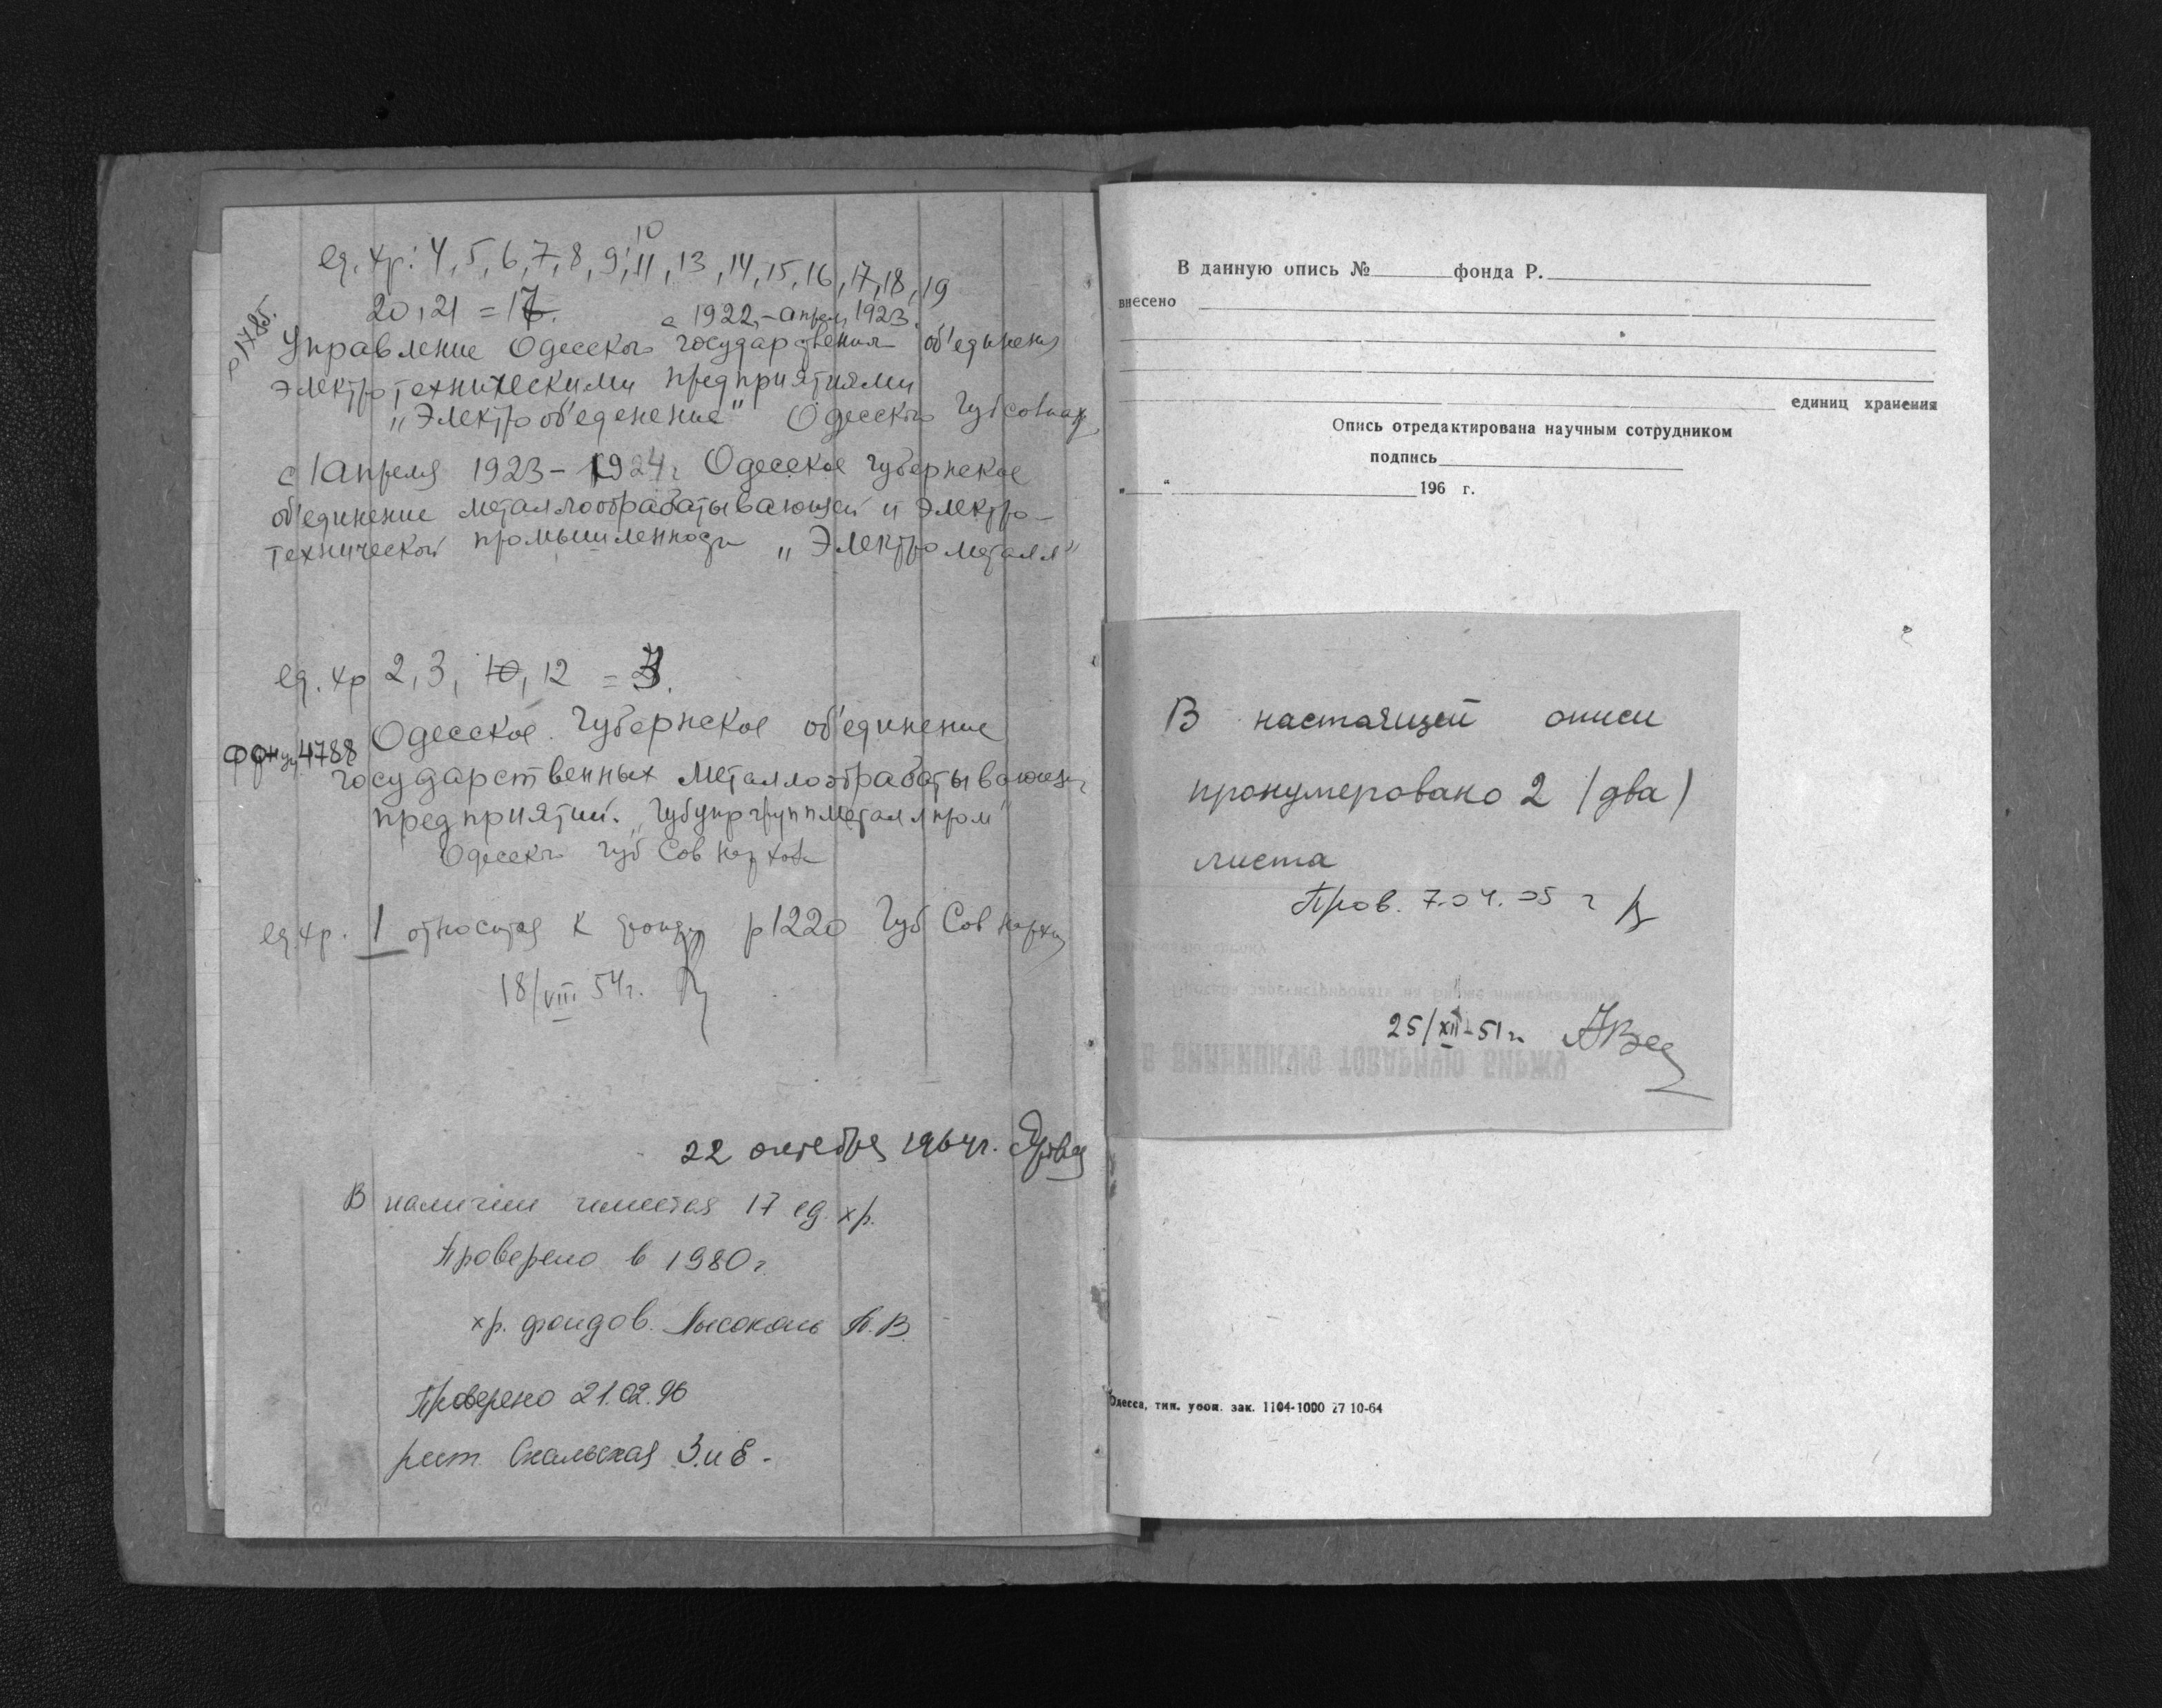 10
ед. хр: 4, 5, 6, 7, 8, 9, 11, 13, 14, 15, 16, 17, 18, 19
20, 21 = 17.
с 1922 - апрель 1923.
Управление Одесского государственного об'единения
электротехническими предприятиями
„Электрооб'еденение" Одесского Губсовнарх
с 1 апреля 1923 - 1924 г Одесское губернское
об'единение металлообрабатывающей и электро-
технической промышленности „Электрометалл"
ед. хр 2, 3, 10, 12 = 3.
фонд 4788
Одесское Губернское об'единение
государственных металлообрабатывающих
предприятий. „Губупргруппметаллпром"
Одесского Губ Сов нар хоза
ед. хр. 1 относится к фонду р1220 Губ Сов нархоз
18/VIII 54 г.
22 октября 1964 г.
В наличии имеется 17 ед. хр.
Проверено в 1980 г.
хр. фондов. Лысоконь А. В.
Проверено 21.02.96
рест. Скальская З. и Е.
В данную опись № фонда Р.
внесено
единиц хранения
Опись отредактирована научным сотрудником
подпись
„ “ 196 г.
В настоящей описи
пронумеровано 2 (два)
листа
Пров. 7.04.05 г
25/XII-51 г.
Одесса, тип. упои. зак. 1104-1000 27 10-64